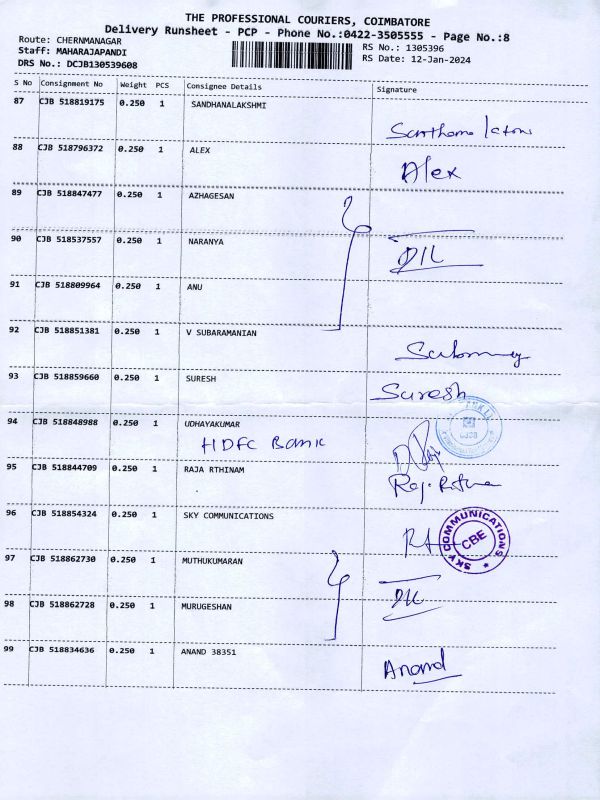 THE PROFESSIONAL COURIERS, COIMBATORE
Delivery Runsheet - PCP - Phone No.:0422-3505555 - Page No.:8
Route: CHERNMANAGAR RS No.: 1305396
Staff: MAHARAJAPANDI RS Date: 12-Jan-2024
DRS No.: DCJB130539608
S No Consignment No Weight PCS Consignee Details Signature
87 CJB 518819175 0.250 1 SANDHANALAKSHMI
88 CJB 518796372 0.250 1 ALEX Alex
89 CJB 518847477 0.250 1 AZHAGESAN
90 CJB 518537557 0.250 1 NARANYA
91 CJB 518809964 0.250 1 ANU
92 CJB 518851381 0.250 1 V SUBARAMANIAN
93 CJB 518859660 0.250 1 SURESH Suresh
94 CJB 518848988 0.250 1 UDHAYAKUMAR
HDFC Bank
95 CJB 518844709 0.250 1 RAJA RTHINAM
96 CJB 518854324 0.250 1 SKY COMMUNICATIONS
SKY COMMUNICATIONS CBE
97 CJB 518862730 0.250 1 MUTHUKUMARAN
98 CJB 518862728 0.250 1 MURUGESHAN
99 CJB 518834636 0.250 1 ANAND 38351 Anand